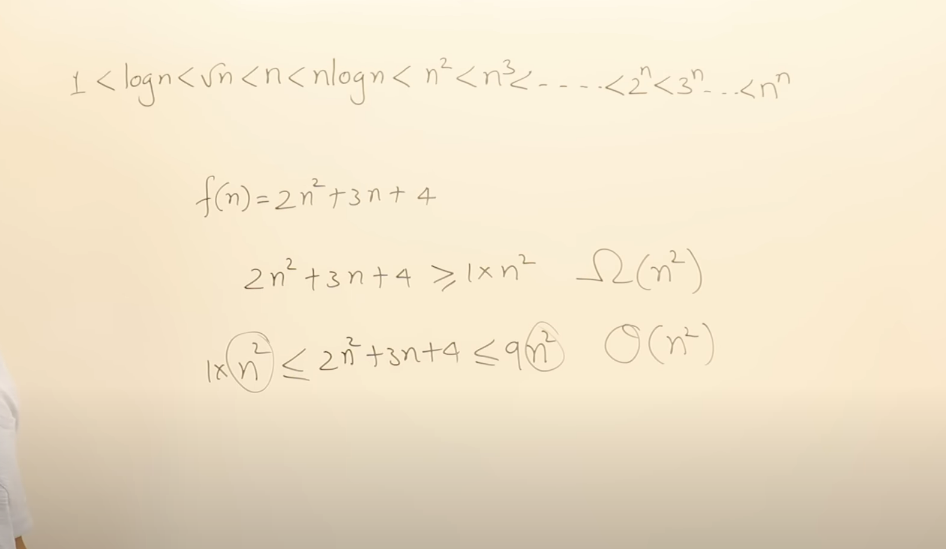 1 < logn < √n < n < nlogn < n² < n³ < - - - . . < 2ⁿ < 3ⁿ - . . < nⁿ
f(n) = 2n² + 3n + 4
2n² + 3n + 4 ≥ 1×n² Ω(n²)
1×n² ≤ 2n² + 3n + 4 ≤ 9n² O(n²)